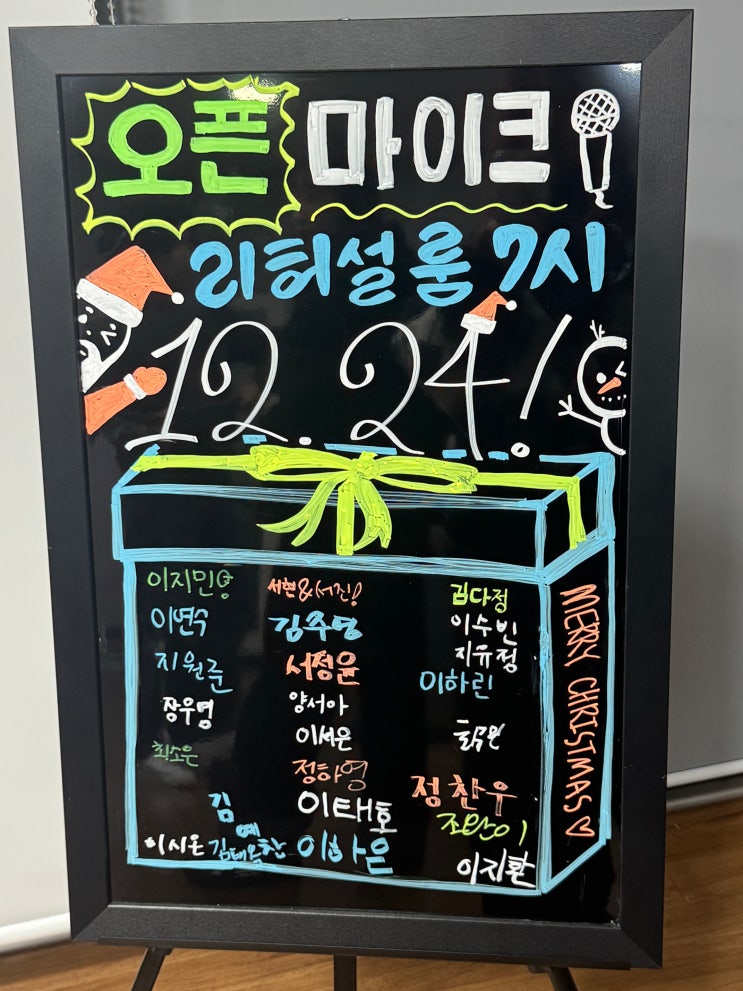 오픈 마이크
리허설룸 7시
12. 24!
이지민
서현&서진!
김다정
이연수
김주영
이수빈
지원준
서정윤
지유정
장우영
양서아
이하린
최소은
이서은
정하영
정찬우
이태호
조완이
김예찬
이시온
김태욱
이하은
이지환
MERRY CHRISTMAS♡